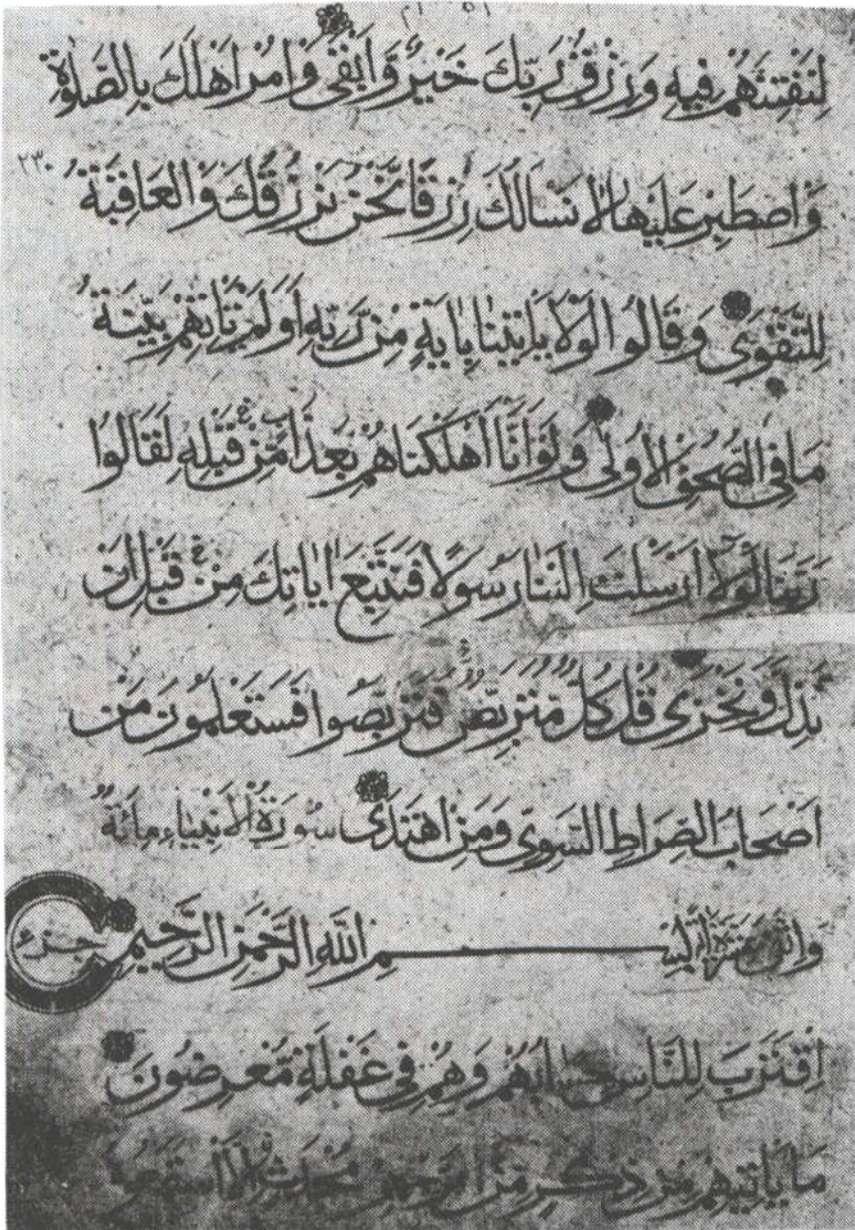 لِنَفْتِنَهُمْ فِيهِ وَرِزْقُ رَبِّكَ خَيْرٌ وَاَبْقٰى وَاْمُرْ اَهْلَكَ بِالصَّلٰوةِ
وَاصْطَبِرْ عَلَيْهَا لَا نَسْاَلُكَ رِزْقًا نَحْنُ نَرْزُقُكَ وَالْعَاقِبَةُ
٢٣٠
لِلتَّقْوٰى وَقَالُوا لَوْلَا يَاْتِينَا بِاٰيَةٍ مِنْ رَبِّهِ اَوَلَمْ تَاْتِهِمْ بَيِّنَةُ
مَا فِي الصُّحُفِ الْاُولٰى وَلَوْ اَنَّا اَهْلَكْنَاهُمْ بِعَذَابٍ مِنْ قَبْلِهِ لَقَالُوا
رَبَّنَا لَوْلَا اَرْسَلْتَ اِلَيْنَا رَسُولًا فَنَتَّبِعَ اٰيَاتِكَ مِنْ قَبْلِ اَنْ
نَذِلَّ وَنَخْزٰى قُلْ كُلٌّ مُتَرَبِّصٌ فَتَرَبَّصُوا فَسَتَعْلَمُونَ مَنْ
اَصْحَابُ الصِّرَاطِ السَّوِيِّ وَمَنِ اهْتَدٰى سُورَةُ الْاَنْبِيَاءِ مِائَةٌ
وَاثْنَى عَشَرَةَ اٰيَةً بِسْمِ اللّٰهِ الرَّحْمٰنِ الرَّحِيمِ
جزء
اِقْتَرَبَ لِلنَّاسِ حِسَابُهُمْ وَهُمْ فِي غَفْلَةٍ مُعْرِضُونَ
مَا يَاْتِيهِمْ مِنْ ذِكْرٍ مِنْ رَبِّهِمْ مُحْدَثٍ اِلَّا اسْتَمَعُوهُ